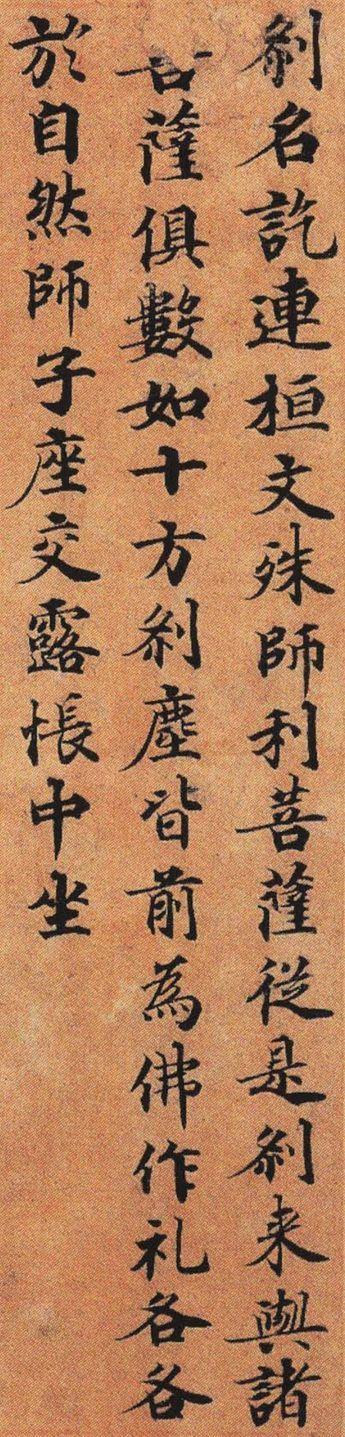 刹名訖連桓文殊師利菩薩従是刹来與諸
菩薩俱數如十方刹塵皆前為佛作礼各各
於自然師子座交露帳中坐